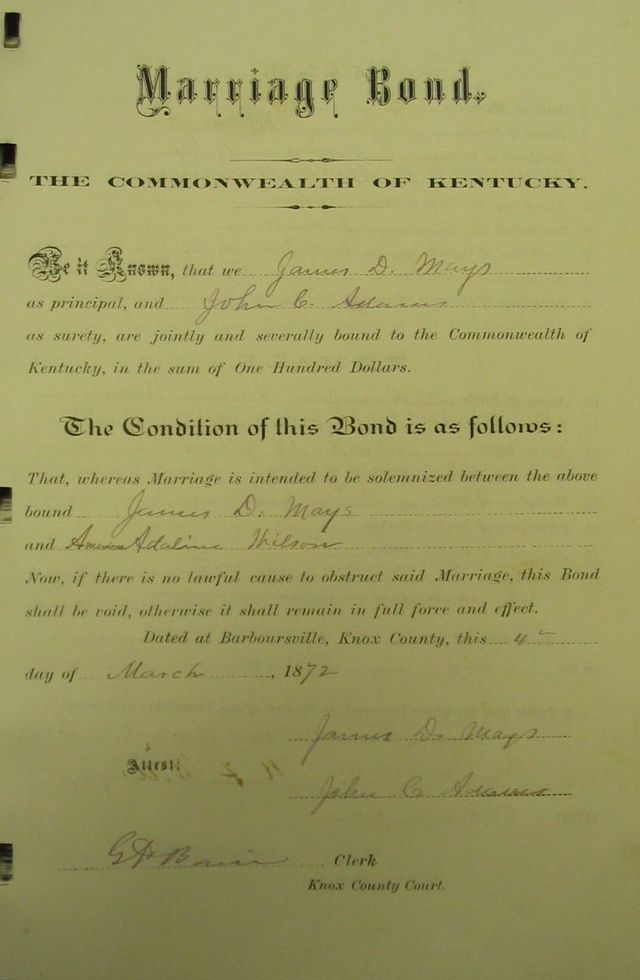 Marriage Bond.
THE COMMONWEALTH OF KENTUCKY.
Be it Known, that we James D. Mays
as principal, and John C. Adams
as surety, are jointly and severally bound to the Commonwealth of
Kentucky, in the sum of One Hundred Dollars.
The Condition of this Bond is as follows:
That, whereas Marriage is intended to be solemnized between the above
bound James D. Mays
and America Adaline Wilson
Now, if there is no lawful cause to obstruct said Marriage, this Bond
shall be void, otherwise it shall remain in full force and effect.
Dated at Barboursville, Knox County, this 4
day of March, 1872
James D. Mays
Attest:
John C Adams
Clerk
Knox County Court.